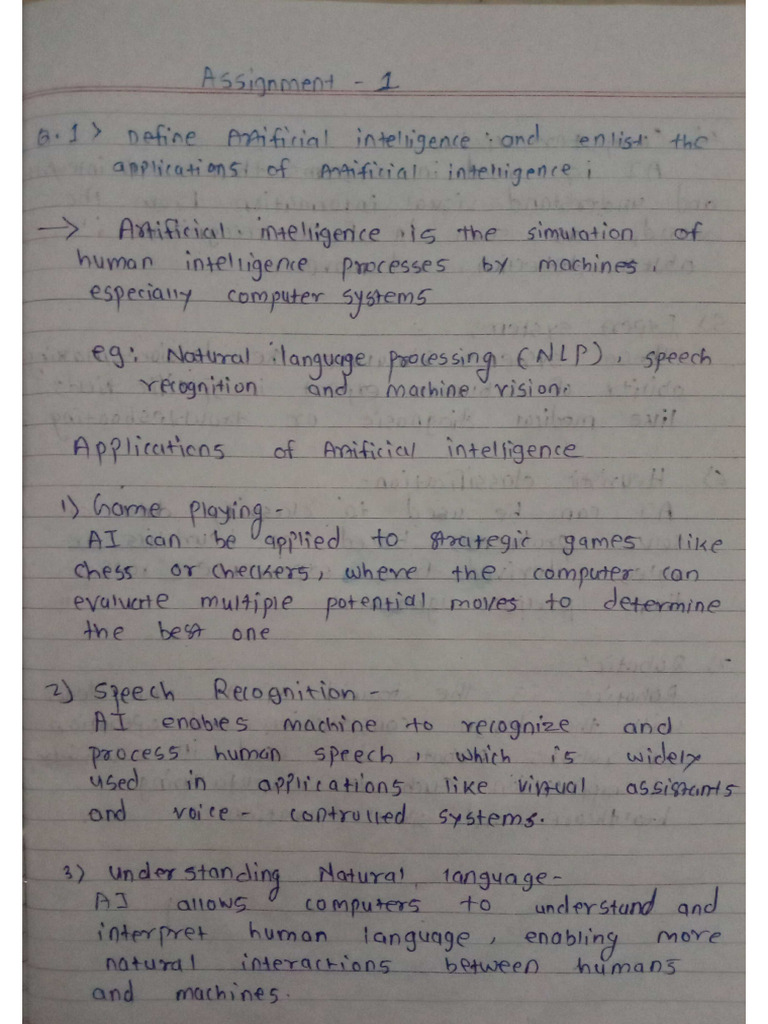 Assignment - 1
Q.1> Define Artificial intelligence and enlist the
applications of Artificial intelligence ;
→ Artificial intelligence is the simulation of
human intelligence processes by machines,
especially computer systems
eg: Natural language processing (NLP), speech
recognition and machine vision.
Applications of Artificial intelligence
1) Game playing -
AI can be applied to strategic games like
chess or checkers, where the computer can
evaluate multiple potential moves to determine
the best one
2) Speech Recognition -
AI enables machine to recognize and
process human speech, which is widely
used in applications like virtual assistants
and voice - controlled systems.
3) understanding Natural language -
AI allows computers to understand and
interpret human language, enabling more
natural interactions between humans
and machines.